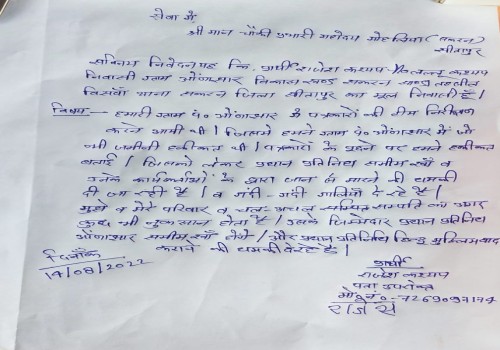 सेवा में,
श्री मान चौकी प्रभारी महोदय मोहलिया (सकरन)
सीतापुर
सविनय निवेदन यह कि प्रार्थी राजेश कश्यप S/o लल्लू कश्यप
निवासी ग्राम ओंगाशार विकास खण्ड सकरन खण्ड तहसील
बिसवाँ थाना सकरन जिला सीतापुर का मूल निवासी है।
विषय— हमारी ग्राम पं० ओंगाशार में पत्रकारों की टीम निरीक्षण
करने आयी थी। जिसमे हमने ग्राम पं० ओंगाशार में जो
भी जमीनी हकीकत थी। पत्रकारों के पूछने पर हमने हकीकत
बताई। जिसको लेकर प्रधान प्रतिनिधि समीम खाँ व
उनके कार्यकर्ताओं के द्वारा जान से मारने की धमकी
दी जा रही है। व गंदी-गंदी गालियाँ दे रहे है।
मुझे व मेरे परिवार व चल अचल सम्पत्ति को अगर
कुछ भी नुकसान होता है। उसके जिम्मेदार प्रधान प्रतिनिधि
ओंगाशार समीम खाँ होंगे। और प्रधान प्रतिनिधि हिन्दू मुस्लिम वाद
कराने की धमकी देते है।
दिनाँक
14/08/2022
प्रार्थी
राजेश कश्यप
पता उपरोक्त
मो० नं०-7269097174
राजेश